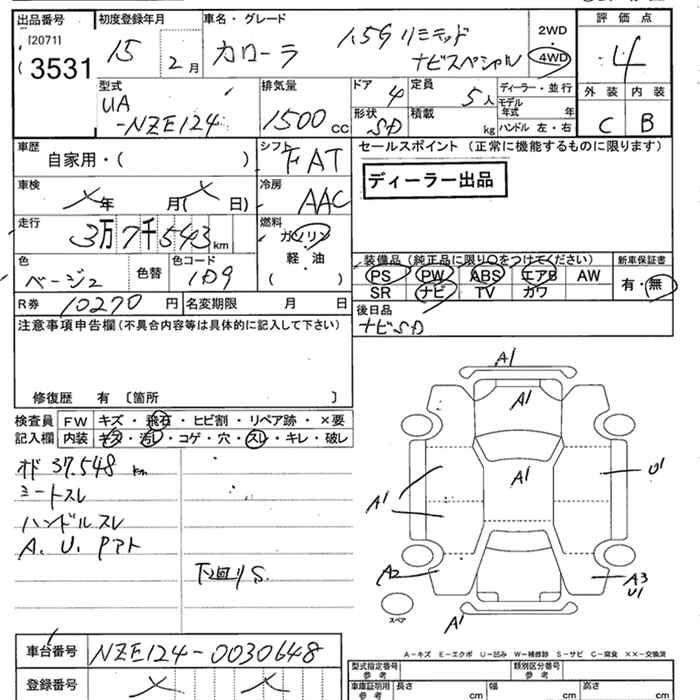 出品番号 初度登録年月 車名・グレード 1.5G リミテッド 2WD 評価点
[2071] 15 2月 カローラ ナビスペシャル 4WD 4
3531
型式 排気量 ドア 定員 ディーラー・並行 外装 内装
UA 1500cc 4 5人 モデル年式 年 C B
-NZE124 形状 積載 kg ハンドル 左・右
SD
車歴 シフト セールスポイント (正常に機能するものに限ります)
自家用・( ) FAT
ディーラー出品
車検 冷房
年 月( 日) AAC
走行 燃料
3万7千543km ガソリン
色 色替 色コード 軽・油 装備品 (純正品に限り○をつけてください) 新車保証書
ベージュ 1D9 ( ) PS PW ABS エアB AW 有・無
SR ナビ TV カワ
R券 10270円 名変期限 月 日 後日品
ナビSD
注意事項申告欄(不具合内容等は具体的に記入して下さい)
修復歴 有 〔箇所 〕
検査員 FW キズ・飛石・ヒビ割・リペア跡・×要
記入欄 内装 キズ・汚レ・コゲ・穴・スレ・キレ・破レ
オド 37.548 km
シートスレ
ハンドルスレ
A. U. Pアト
下回りS.
A1
A1
A1
U1
A1
A2
A3
U1
スペア
A1
A-キズ E-エクボ U-凹み W-補修跡 S-サビ C-腐食 ××-交換済
車台番号 NZE124-0030648
型式指定番号 参考 類別区分番号 参考
登録番号
車庫証明用 参考 長さ cm 幅 cm 高さ cm